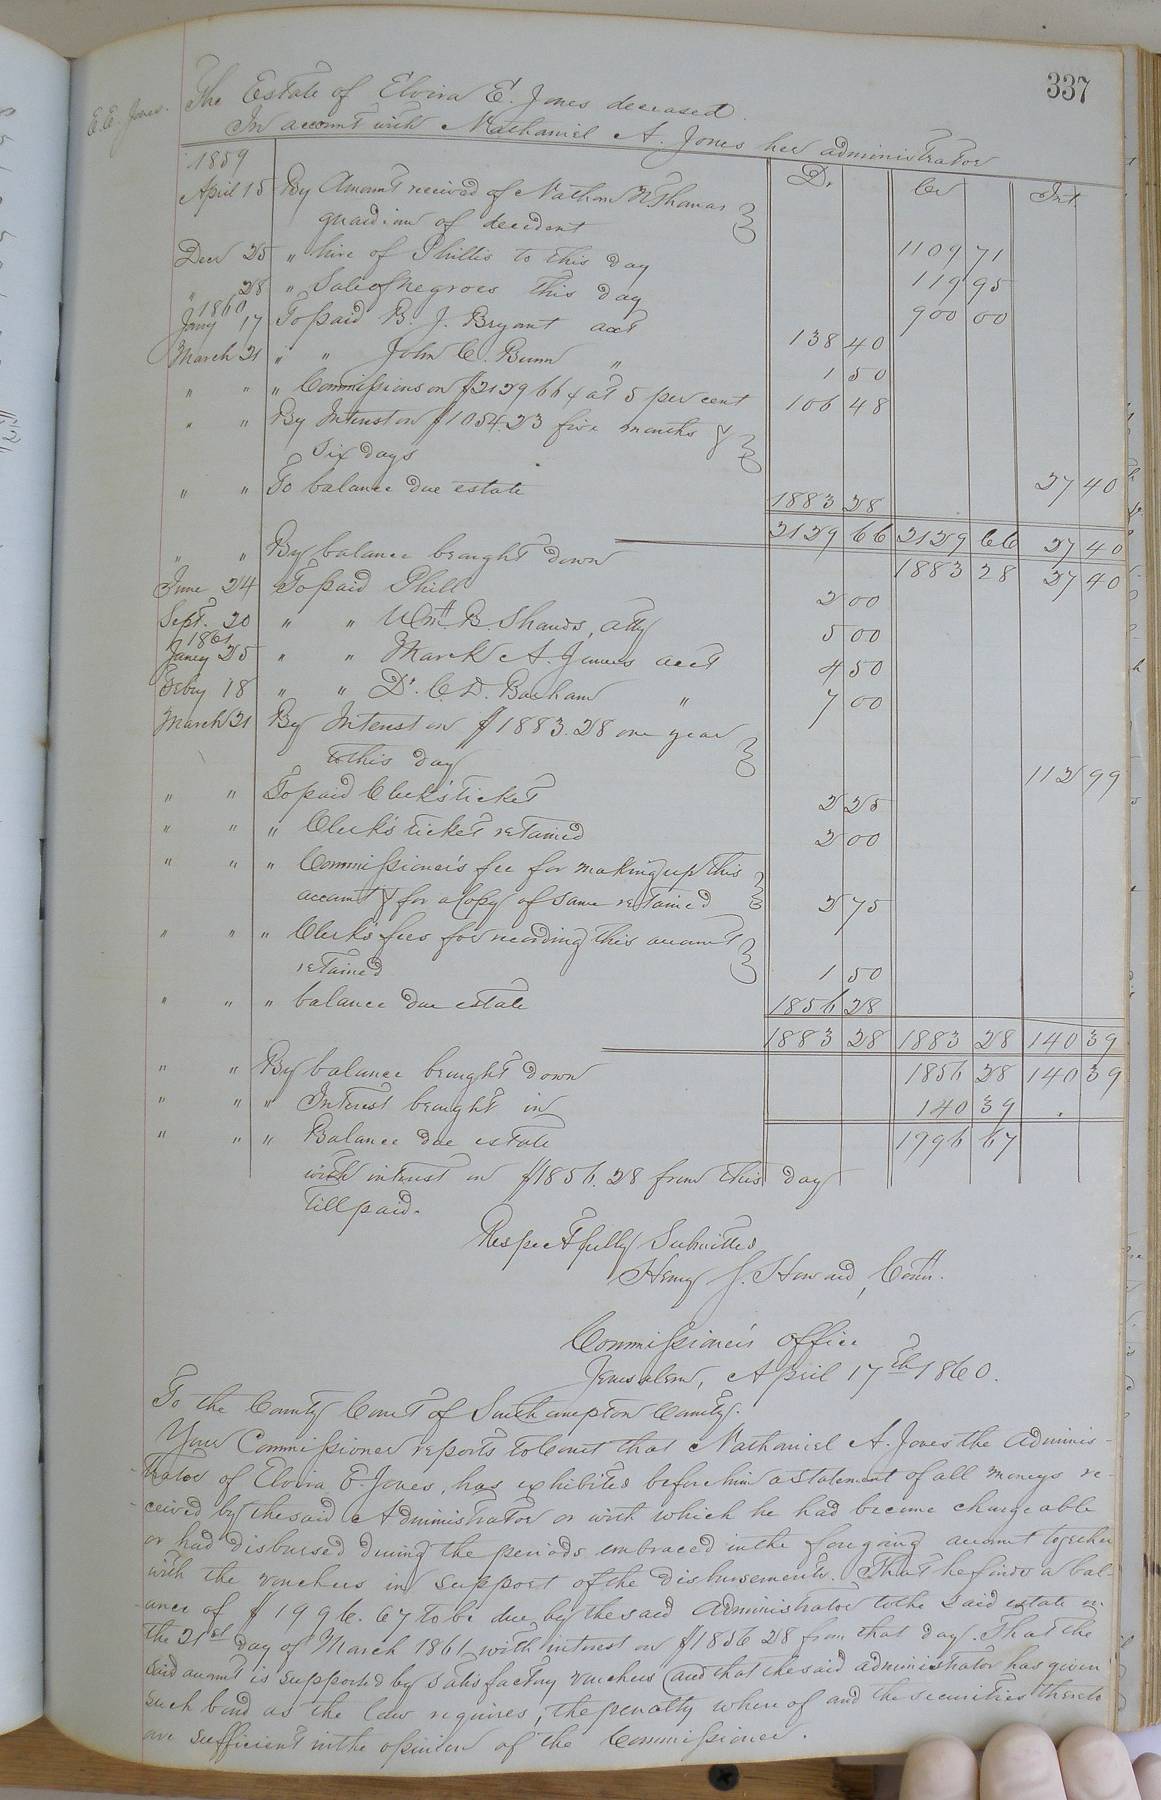 337
E. E. Jones.
The Estate of Elvira E. Jones deceased.
In account with Nathaniel A. Jones her administrator
1859 Dr Cr Int
April 15 By Amount received of Nathan N Thomas
guardian of decedent 1109 71
Decr 25 " hire of Phillis to this day 119 95
" 28 " Sale of negroes this day 900 00
1860
Jany 17 To paid B. J. Bryant acct 138 40
March 21 " " John C. Bunn " 1 50
" " " Commissions on $2129 66 at 5 per cent 106 48
" " By Interest on $1054.23 five months &
six days 27 40
" " To balance due estate 1883 28
2129 66 2129 66 27 40
" " By balance brought down 1883 28 27 40
June 24 To paid Phill 2 00
Sept. 20 " " Wm B. Shands, atty 5 00
1861
Jany 25 " " Mark A. James acct 4 50
Feby 18 " " Dr. C. D. Barham " 7 00
March 21 By Interest on $1883.28 one year
to this day 112 99
" " To paid Clerk's ticket 2 25
" " " Clerk's ticket retained 2 00
" " " Commissioner's fee for making up this
account & for a Copy of same retained 2 75
" " " Clerk's fees for recording this account
retained 1 50
" " " balance due estate 1856 28
1883 28 1883 28 140 39
" " By balance brought down 1856 28 140 39
" " " Interest brought in 140 39 .
" " " Balance due estate 1996 67
with interest on $1856.28 from this day
till paid.
Respectfully Submitted
Henry J. Howard, Comr.
Commissioner's office
Jerusalem, April 17th 1860.
To the County Court of Southampton County.
Your Commissioner reports to Court that Nathaniel A. Jones the Adminis-
trator of Elvira E. Jones, has exhibited before him a statement of all moneys re-
ceived by the said Administrator or with which he had become chargeable
or had disbursed during the periods embraced in the foregoing account together
with the vouchers in support of the disbursements. That he finds a bal-
ance of $1996.67 to be due by the said Administrator to the said estate on
the 21st day of March 1861, with interest on $1856 28 from that day. That the
said account is supported by satisfactory vouchers and that the said administrator has given
such bond as the law requires, the penalty whereof and the securities thereto
are sufficient in the opinion of the Commissioner.